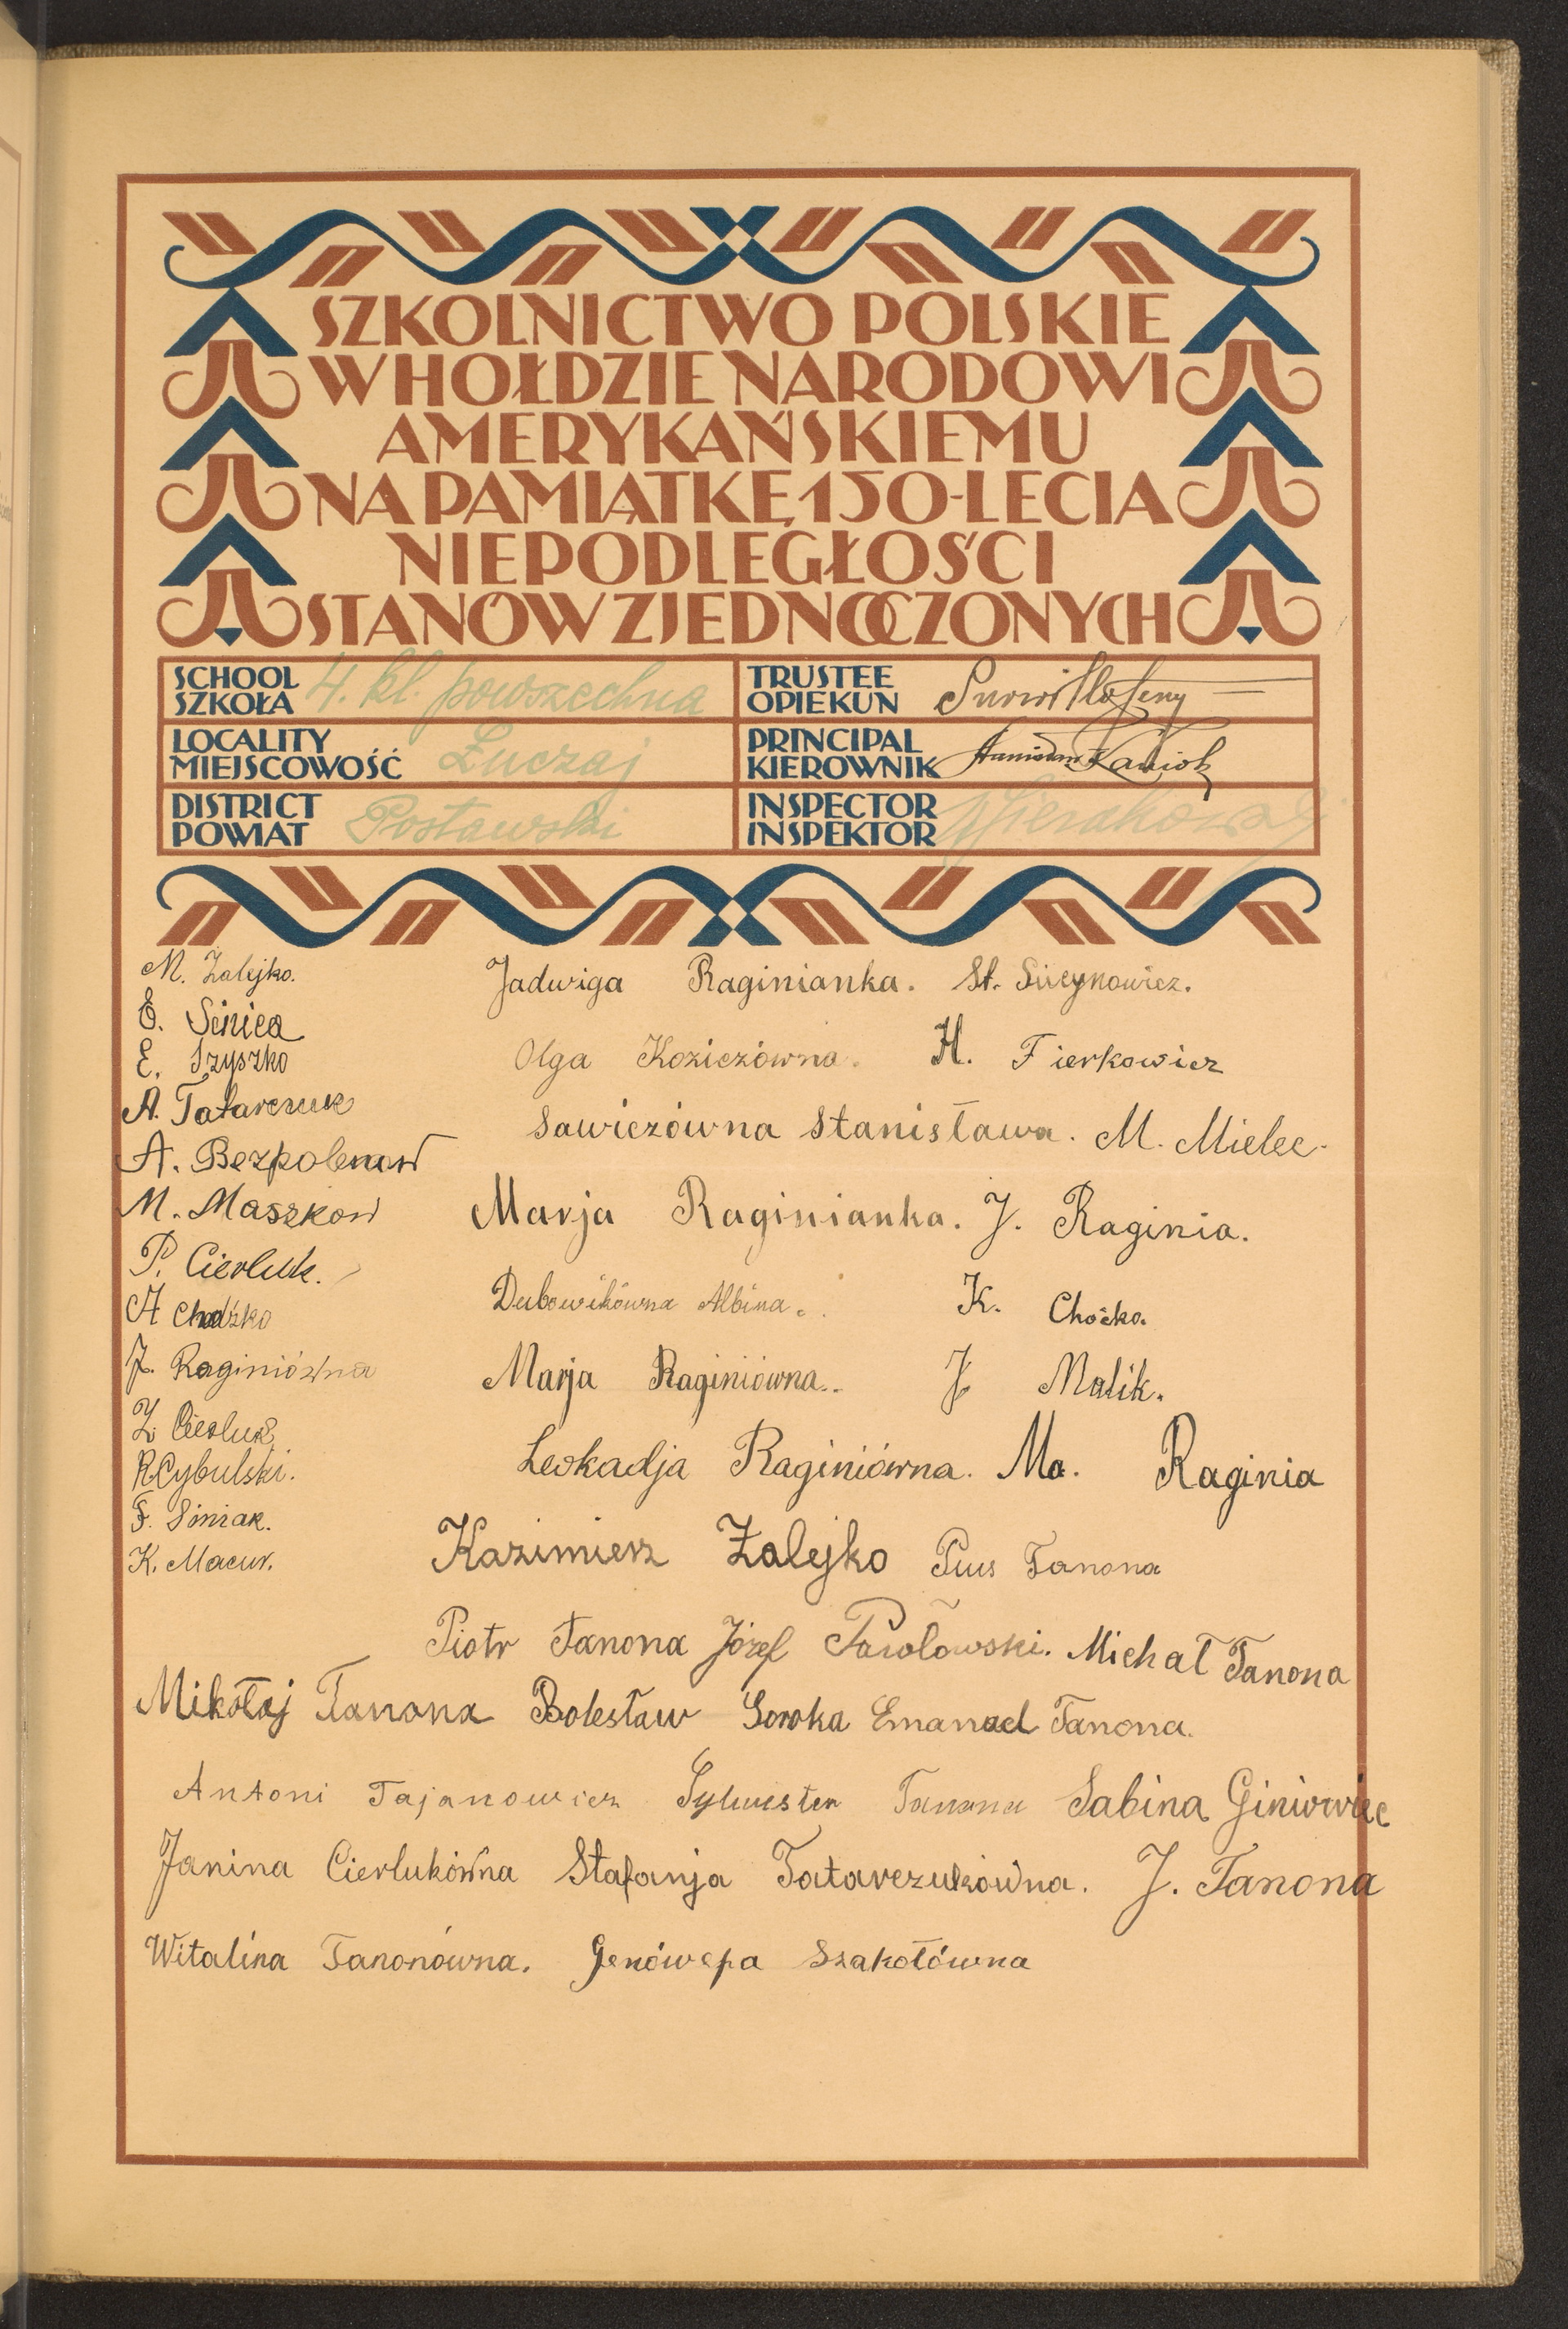 SZKOLNICTWO POLSKIE
W HOŁDZIE NARODOWI
AMERYKAŃSKIEMU
NA PAMIĄTKĘ 150-LECIA
NIEPODLEGŁOŚCI
STANÓW ZJEDNOCZONYCH
SCHOOL
SZKOŁA
4. kl. powszechna
TRUSTEE
OPIEKUN
LOCALITY
MIEJSCOWOŚĆ
Łuczaj
PRINCIPAL
KIEROWNIK
Stanisław
DISTRICT
POWIAT
Postawski
INSPECTOR
INSPEKTOR
M. Żalejko.
E. Sinica
E. Szyszko
A. Tatarczuk
A. Bezpolenow
M. Maszkow
P. Cierluk.
A Chodźko
J. Raginiówna
Z Cierluk
R. Cybulski.
F. Siniak.
K. Macur.
Jadwiga Raginianka. St.
Olga Koziczówna. H. Fierkowicz
Sawiczówna Stanisława. M. Mielec.
Marja Raginianka. J. Raginia.
Dubowikówna Albina. K. Choćko.
Marja Raginiówna.. J Malik.
Leokadja Raginiówna. Ma. Raginia
Kazimierz Żalejko Pius Tanona
Piotr Tanona Józef Pawłowski. Michał Tanona
Mikołaj Tanona Bolesław Soroka Emanuel Tanona.
Antoni Tajanowicz Sylwester Tanona Sabina
Janina Cierlukówna Stafanja Tatarczukówna. J. Tanona
Witalina Tanonówna. Genówefa Szakołówna